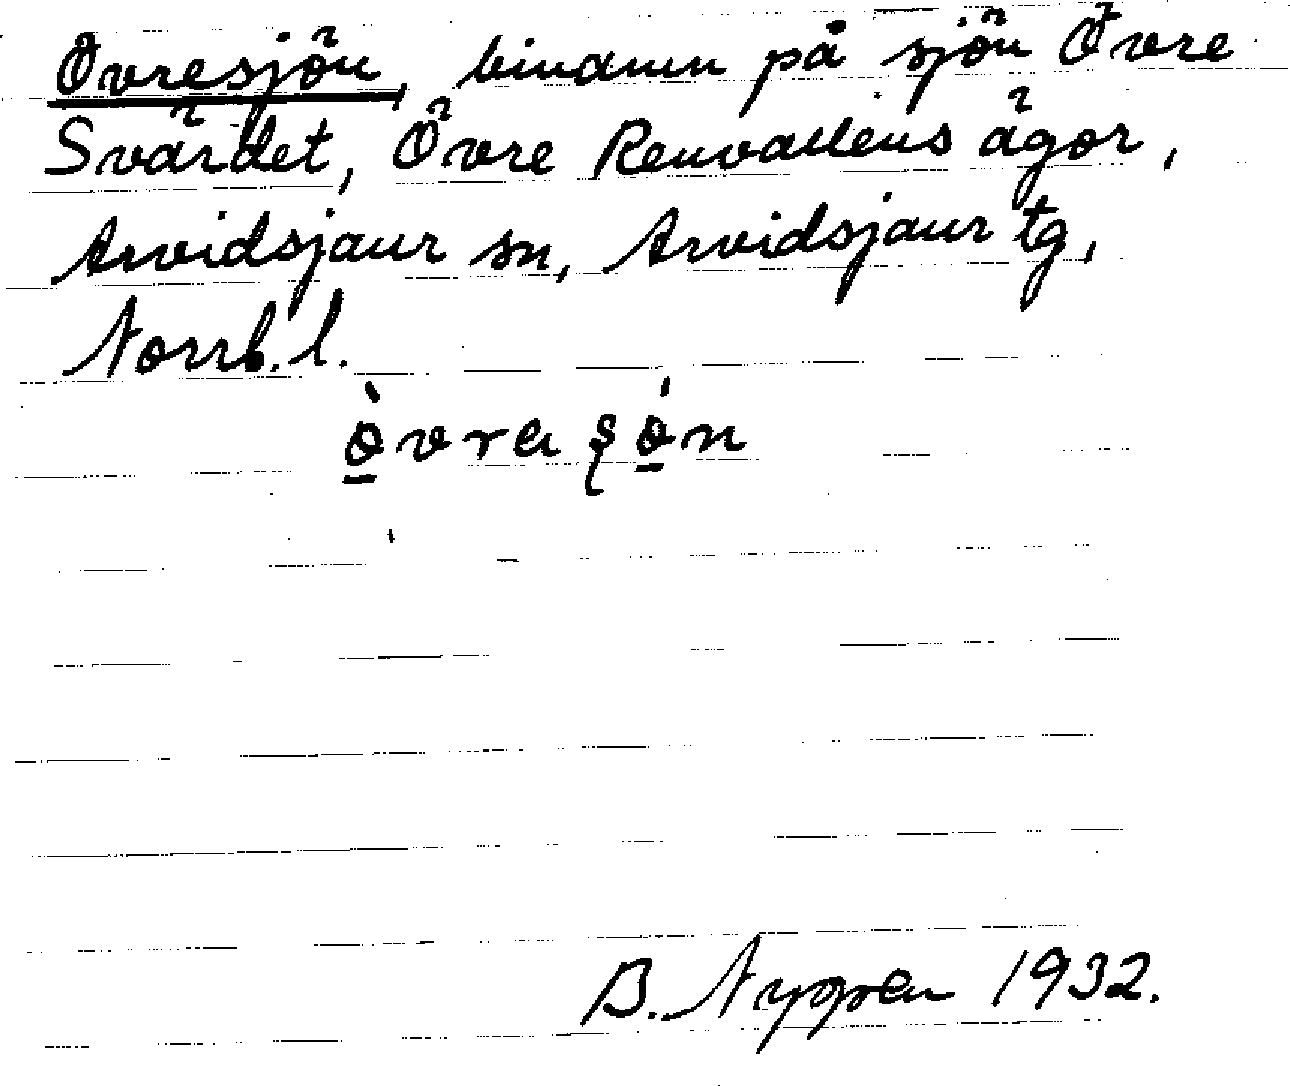 Övresjön, binamn på sjön Övre
Svärdet, Övre Renvallens ägor,
Arvidsjaur sn, Arvidsjaur tg,
Norrb. l.
B. Nygren 1932.